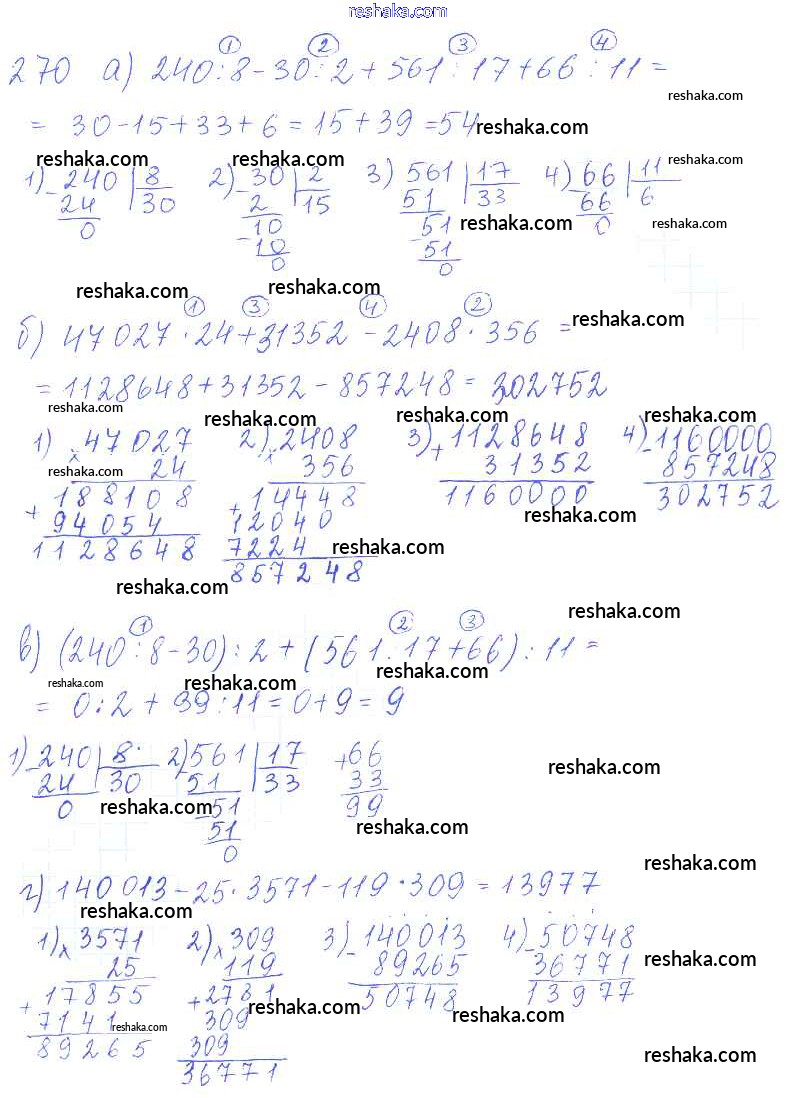 reshaka.com
270 а) 240 : 8 - 30 : 2 + 561 : 17 + 66 : 11 =
① ② ③ ④
reshaka.com
= 30 - 15 + 33 + 6 = 15 + 39 = 54
reshaka.com
reshaka.com reshaka.com reshaka.com
1) 240 | 8 2) 30 | 2 3) 561 | 17 4) 66 | 11
24 30 2 15 51 33 66 6
0 10 51 0
10 51
0 0
reshaka.com reshaka.com
reshaka.com reshaka.com
① ③ ④ ②
б) 47027 · 24 + 31352 - 2408 · 356 =
reshaka.com
= 1128648 + 31352 - 857248 = 302752
reshaka.com reshaka.com reshaka.com reshaka.com
1) 47027 2) 2408 3) 1128648 4) 1160000
× 24 × 356 + 31352 - 857248
reshaka.com
+ 188108 + 14448 1160000 302752
94054 12040
reshaka.com
1128648 7224
reshaka.com
857248
reshaka.com
reshaka.com
① ② ③
в) (240 : 8 - 30) : 2 + (561 : 17 + 66) : 11 =
reshaka.com reshaka.com reshaka.com
= 0 : 2 + 99 : 11 = 0 + 9 = 9
1) 240 | 8 2) 561 | 17 + 66
24 30 51 33 33
0 51 99
51
0
reshaka.com
reshaka.com reshaka.com
reshaka.com
г) 140013 - 25 · 3571 - 119 · 309 = 13977
reshaka.com
1) 3571 2) 309 3) 140013 4) 50748
× 25 × 119 - 89265 - 36771
reshaka.com
+ 17855 + 2781 50748 13977
reshaka.com reshaka.com
7141 309
reshaka.com
89265 309
36771
reshaka.com